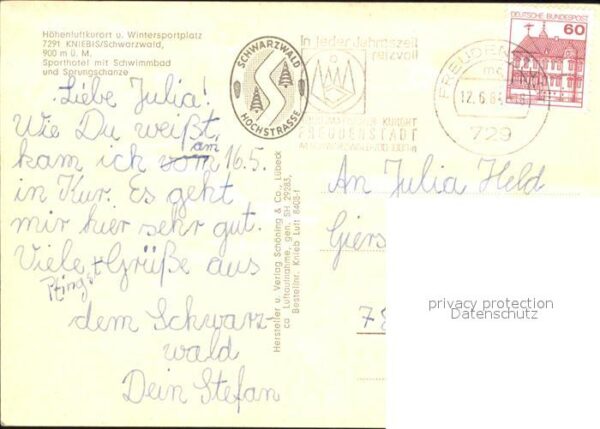 Höhenluftkurort u. Wintersportplatz
7291 KNIEBIS/Schwarzwald,
900 m ü. M.
Sporthotel mit Schwimmbad
und Sprungschanze
SCHWARZWALD
HOCHSTRASSE
in jeder Jahreszeit
reizvoll
KURORT
FREUDENSTADT
FREUDENS
12.6.8
729
DEUTSCHE BUNDESPOST
60
Liebe Julia!
Wie Du weißt,
kam ich vom am 16.5.
in Kur. Es geht
mir hier sehr gut.
Viele Pfingst Grüße aus
dem Schwarz-
wald
Dein Stefan
Hersteller u. Verlag Schöning & Co., Lübeck
ca Luftaufnahme, gen. SH 29285,
Bestellnr. Knieb Luft 8408-1
An Julia Held
Giers
7
privacy protection
Datenschutz